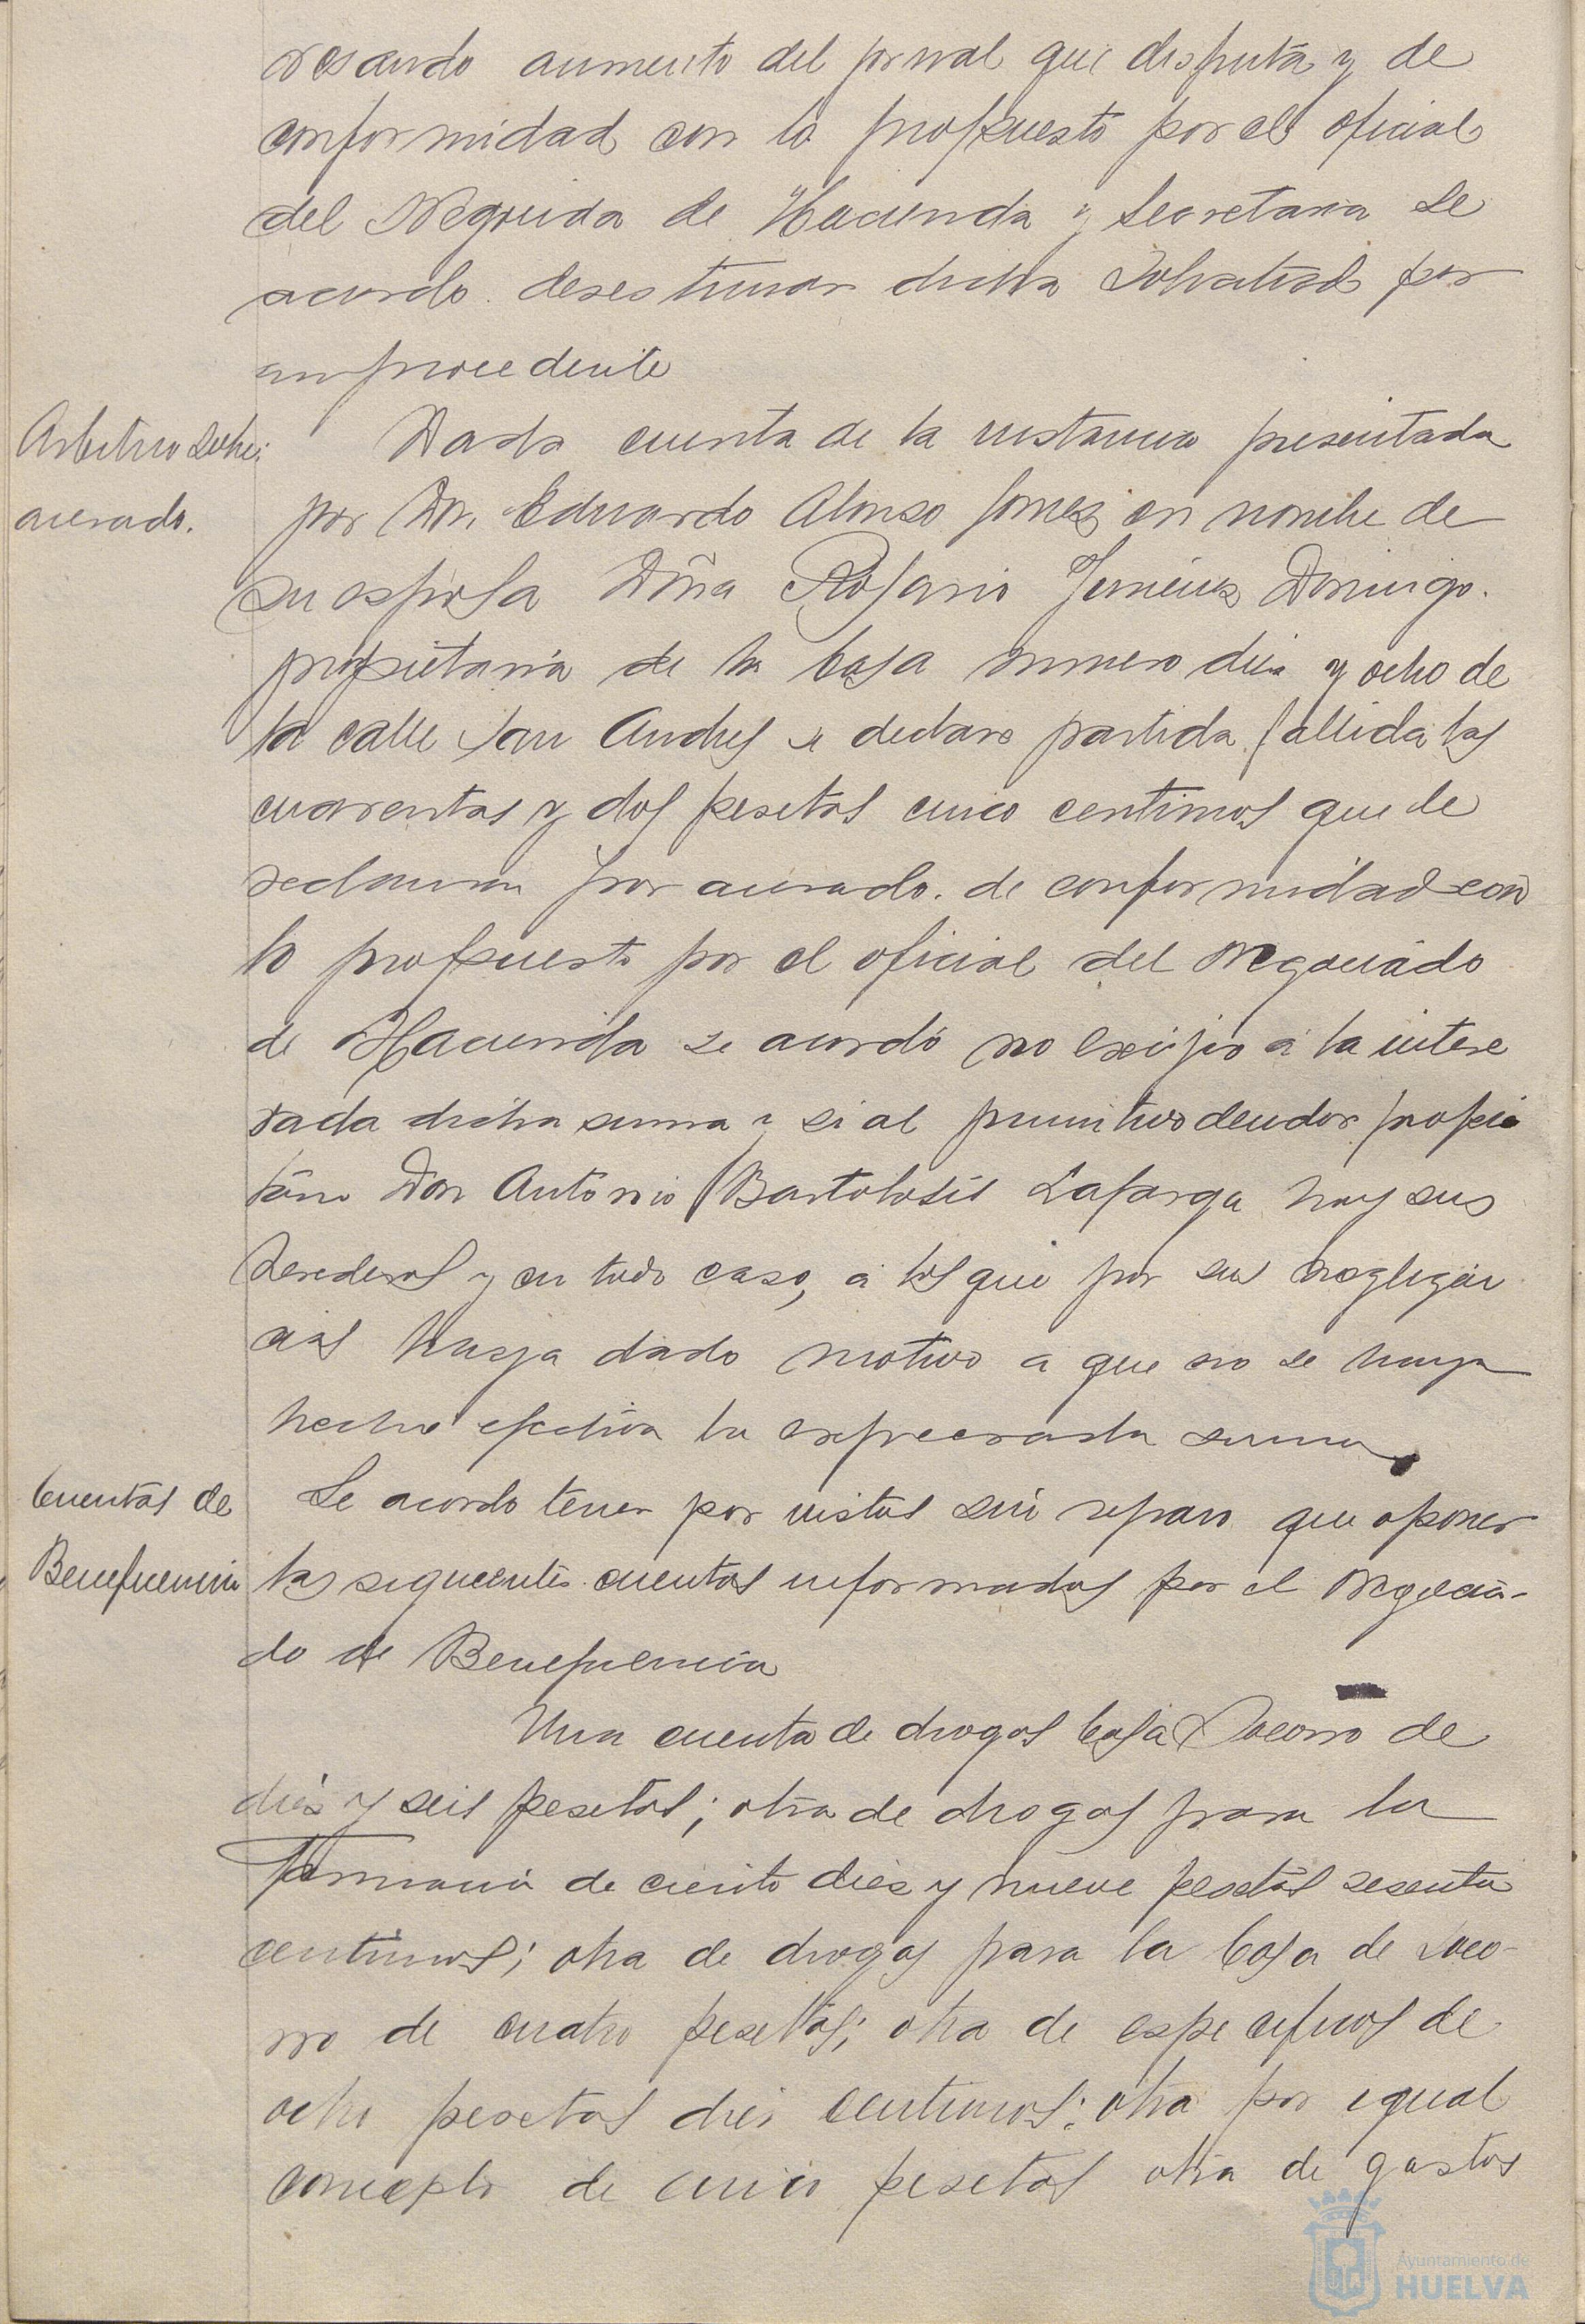 resando aumento del jornal que disfruta y de
conformidad con lo propuesto por el oficial
del Negociado de Hacienda y Secretaria se
acordo desestimar dicha solicitud por
improcedente
Arbitrio sobre
acerado.
Dada cuenta de la instancia presentada
por Don Eduardo Alonso Gomez en nombre de
su esposa Dña Rosario Jimenez Domingo.
propietaria de la casa numero diez y ocho de
la calle San Andres se declare partida fallida las
cuarentas y dos pesetas cinco centimos que le
reclaman por acerado. de conformidad con
lo propuesto por el oficial del Negociado
de Hacienda se acordó no exijir á la intere
sada dicha suma y si al primitivo deudor propie
tario Don Antonio Bartolosis Lafarga hoy sus
herederos y en todo caso, a los que por su negligen
cias haya dado motivo a que no se haya
hecho efectiva la expresada suma.
Cuentas de
Beneficencia
Se acordo tener por vistas sin reparo que oponer
las siguientes cuentas informadas por el Negocia-
do de Beneficencia
Una cuenta de drogas Casa Socorro de
diez y seis pesetas; otra de drogas para la
Farmacia de ciento diez y nueve pesetas sesenta
centimos; otra de drogas para la Casa de Soco-
rro de cuatro pesetas; otra de especificos de
ocho pesetas diez centimos; otra por igual
concepto de cinco pesetas otra de gastos
Ayuntamiento de
HUELVA